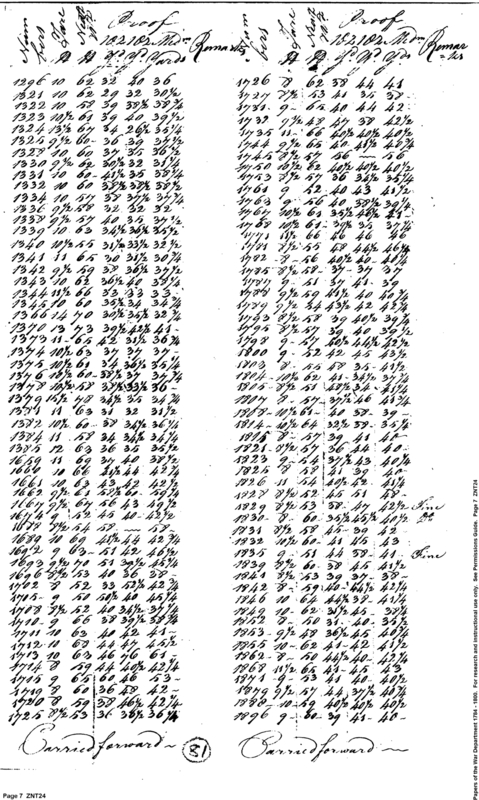 Proof
Num bers Tare Nett Wt 1st 02 2d 02 Mdm Remarks
yds yds yards
1296 10 62 32 40 36
1321 10 62 29 32 30½
1322 10 58 39 38½ 38¾
1323 10½ 61 39 40 39½
1324 13½ 67 34
1325 9½ 60 - 36 39 37½
1328 10 60 37 35 36½
1330 9½ 62 30½ 32 31¼
1331 10 60 - 41½ 35 38¼
1332 10 60 38½ 38½ 38½
1334 10 57 38 37½ 37¾
1336 9½ 58 32 32 32
1338 9½ 57 40 35 37½
1339 10 63 34½ 36½ 35½
1340 10½ 55 31½ 33½ 32½
1341 11 65 30 31½ 30¾
1342 9½ 59 38 36½ 37¼
1343 10 62 36½ 40 38¼
1344 11½ 66 33 33 33
1354 10 60 35¼ 34 34¾
1366 14 70 30½ 35½
1370 13 73 39½ 42½ 41 -
1373 11 - 65 42 31½ 36¾
1374 10½ 63 37 37 37 -
1375 10½ 61 34 36½ 35¼
1376 10½ 60 - 38½ 37 37¾
1378 10½ 58
1379
1381 11 63 31 32 31½
1382 10½ 60 - 38 34½ 36¼
1384 11 - 58 34 34½ 34¼
1385 12 69 36 35 35½
1659 11 69 37 40 38½
1660 10 66 41½ 44 42¾
1661 10 63 43 42 42½
1662 9½ 61
1667 9½ 67 56 43 49½
1674 9 - 52 45
1688 8½ 54 58 — 58
1689 10 69 41½ 44 42¾
1692 9 63 - 51 42 46½
1693 9½ 70 51 39½ 45¼
1696 8½ 53 40 36 38 -
1702 8 52 33
1705 - 9 50 50½ 40 45¼
1708 8½ 52 40 34½ 37¼
1710 - 9 66 38 39½ 38¾
1711 10 63 40 42 41 -
1712 10 68 44 47 45½
1713 10 63 46 76 61
1714 8 59 44 40½ 42¼
1715 9 65 60 46 53 -
1719 8 60 36 48 42 -
1720 8 59 38 46½ 42¼
1725 8½ 53 36 36½ 36¼
Carried forward
81
Proof
Num bers Tare Nett Wt 1st 02 2d 02 Mdm Remarks
yds yds yds
1726 8 62 38 44 41
1727 8½ 53 41 35 38 -
1731 9 - 65 40 44 42 -
1732 9½ 48 47 38 42½
1735 11 - 66 40½ 40½ 40½
1744 9½ 65 40 43 41½
1745 8½ 57 56 — 56
1750 10½ 62 40½ 40½ 40½
1753 8½ 57 36 34½ 35¼
1761 9 - 52 40 43 41½
1763 9 - 56 40 38½ 39¼
1767 10½ 61
1768 10½ 61 - 39½ 35 37¼
1771 11½ 46 46 46
1781 8½ 55 48 44½ 46¼
1782 - 8 - 56 40½ 40 - 40¼
1785 8½ 58 - 37 - 37 37
1787 9 - 51 37 41 39
1788 9½ 59 41½ 40 40¾
1789 9½ 54 43½ 42 42¾
1793 8½ 58 39 40½ 39¾
1795 8½ 57 39 40 39½
1798 9 - 57 40½ 44½ 42½
1800 9 - 52 42 45 43½
1803 8 - 55 48 35 41½
1804 - 10½ 62 41 - 34½ 37¾
1805 - 8½ 51 48½ 34 - 41¼
1807 8 - 57 37½ 46 41¾
1808 - 10½ 61 - 40 38 39 -
1814 - 10½ 64 32½ 38 35¼
1815 8 - 57 39 41 40 -
1821 - 8½ 57 36 44 40
1823 9 - 54 37½ 43 40¼
1825 8 - 58 41 39 40
1826 11 - 54 40½ 42 41¼
1828 8½ 52 45 51 48 -
1829 8½ 53 38 - 47 42½ Fine
1830 - 8 - 60 35½ 45½ 40½ Do
1831 8½ 58 45 - 39 42
1832 10½ 60 41 45 43
1835 9 - 51 44 38 41 Fine
1839 8½ 60 - 38 45 41½
1841 8½ 53 39 37 - 38 -
1842 8 - 59 40 - 44½ 42¼
1846 10 64 44½ 38 - 41¼
1849 10 62 31½ 45 - 38¼
1852 8 - 50 31 40 - 35½
1853 - 9½ 48 36½ 45 40¾
1855 10 - 62 41 - 42 41½
1862 - 8 - 50 44½ 40 - 42¼
1868 11½ 65 41 - 45 43
1871 9 - 53 41 40 - 40½
1879 9½ 57 44 37½ 40¾
1888 - 10 - 59 40½ 40½ 40½
1896 9 - 60 39 41 - 40 -
Carried forward
Page 7 ZNT24
Papers of the War Department 1784 - 1800. For research and instructional use only. See Permissions Guide. Page 7 ZNT24